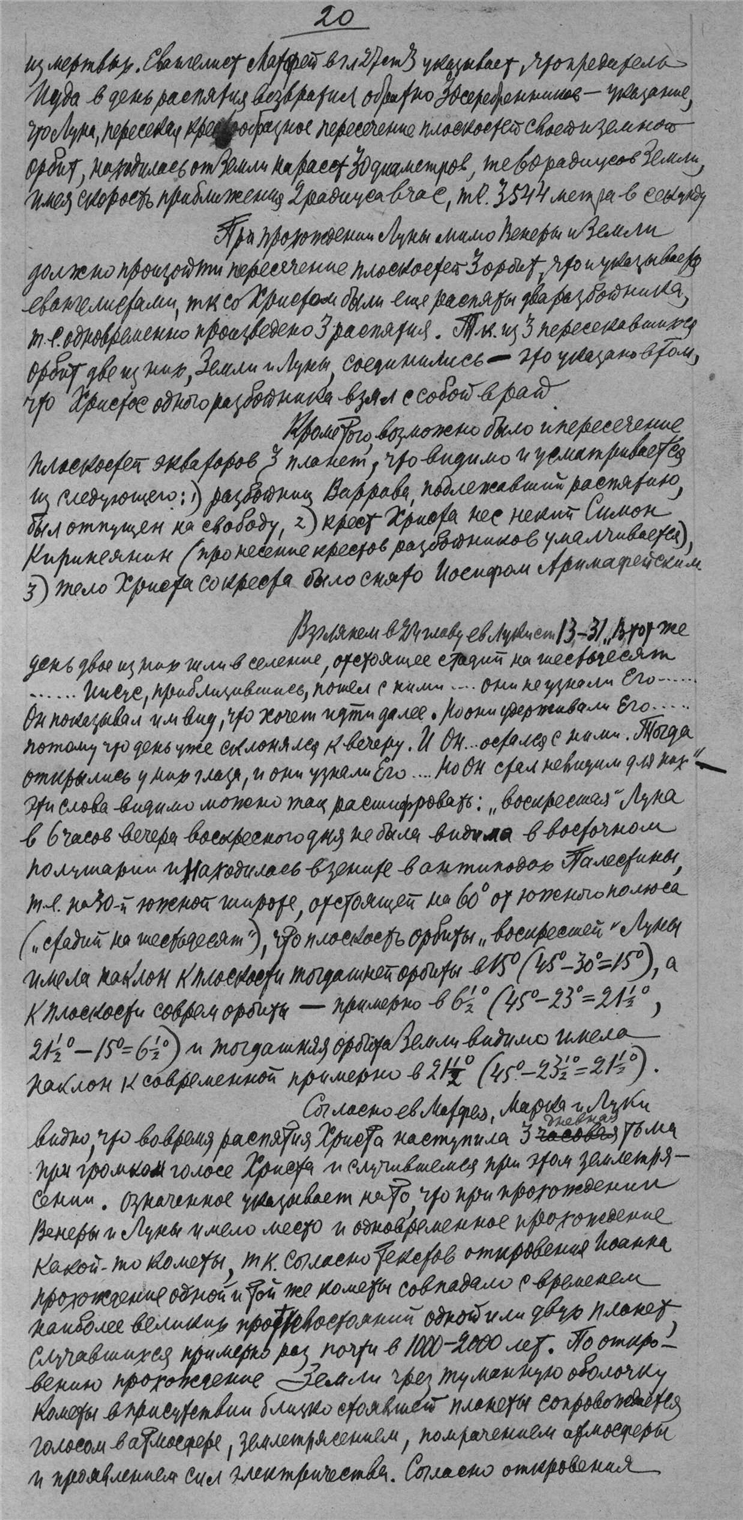 20
из мертвых. Евангелист Матфей в гл 27 ст 3 указывает, что предатель
Иуда в день распятия возвратил обратно 30 серебренников — указание,
что Луна, пересекая крестообразное пересечение плоскостей своей и земной
орбит, находилась от Земли на расст 30 диаметров, т.е 60 радиусов Земли,
имея скорость приближения 2 радиуса в час, т.е. 3544 метра в секунду
При прохождении Луны мимо Венеры и Земли
должно произойти пересечение плоскостей 3 орбит, что и указывается
евангелистами, т.к со Христом были еще распяты два разбойника,
т.е. одновременно произведено 3 распятия. Т.к. из 3 пересекавшихся
орбит две из них, Земли и Луны, соединились — это указано в том,
что Христос одного разбойника взял с собой в рай
Кроме того, возможно было и пересечение
плоскостей экваторов 3 планет, что видимо и усматривается
из следующего: 1) разбойник Варрава, подлежавший распятию,
был отпущен на свободу, 2) крест Христа нес некий Симон
Киринеянин (пронесение крестов разбойников умалчивается),
3) тело Христа со креста было снято Иосифом Аримафейским
Взглянем в 24 главу ев Луки ст 13–31 „В тот же
день двое из них шли в селение, отстоящее стадий на шестьдесят
...... Иисус, приблизившись, пошел с ними .... они не узнали Его ......
Он показывал им вид, что хочет идти далее. Но они удерживали Его .....
потому что день уже склонялся к вечеру. И Он ... остался с ними. Тогда
открылись у них глаза, и они узнали Его .... Но Он стал невидим для них" —
эти слова видимо можно так расшифровать: „воскресшая" Луна
в 6 часов вечера воскресного дня не была видима в восточном
полушарии и находилась в зените в антиподах Палестины,
т.е. на 30-й южной широте, отстоящей на 60° от южного полюса
(„стадий на шестьдесят"), что плоскость орбиты „воскресшей" Луны
имела наклон к плоскости тогдашней орбиты в 15° (45°–30°=15°), а
к плоскости соврем орбиты — примерно в 6½° (45°–23°=21½°,
21½°–15°=6½°) и тогдашняя орбита Земли видимо имела
наклон к современной примерно в 21½° (45°–23½°=21½°).
Согласно ев Матфея, Марка и Луки
видно, что во время распятия Христа наступила 3 часовая дневная тьма
при громком голосе Христа и случившемся при этом землетря-
сении. Означенное указывает на то, что при прохождении
Венеры и Луны имело место и одновременное прохождение
какой-то кометы, т.к. согласно текстов откровения Иоанна
прохождение одной и той же кометы совпадало с временем
наиболее великих противостояний одной или двух планет,
случавшихся примерно раз почти в 1000–2000 лет. По откро-
вению прохождение Земли чрез туманную оболочку
кометы в присутствии близко стоявшей планеты сопровождается
голосом в атмосфере, землетрясением, помрачением атмосферы
и проявлением сил электричества. Согласно откровения